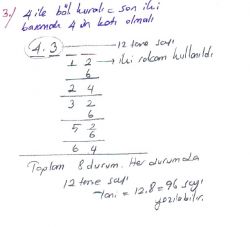 3./ 4 ile böl kuralı = son iki
basamak 4 ün katı olmalı
4.3 → 12 tane sayı
1 2 → iki rakam kullanıldı
6
2 4
3 2
6
5 2
6
6 4
Toplam 8 durum. Her durumda
12 tane sayı
Yani = 12.8 = 96 sayı
yazılabilir.